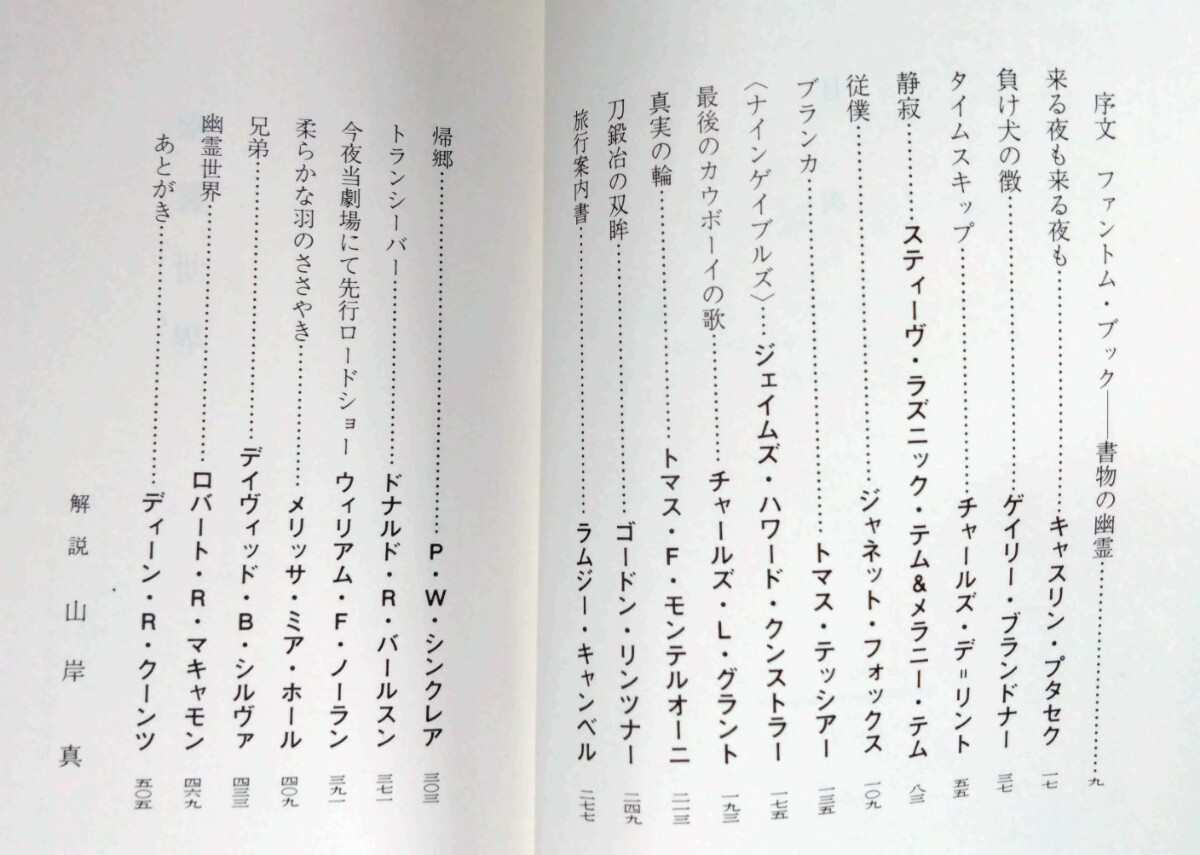 序文　ファントム・ブック——書物の幽霊…………九
来る夜も来る夜も…………キャスリン・プタセク　一七
負け犬の徴…………ゲイリー・ブランドナー　三七
タイムスキップ…………チャールズ・デ＝リント　五五
静寂…………スティーヴ・ラズニック・テム＆メラニー・テム　八三
従僕…………ジャネット・フォックス　一〇九
ブランカ…………トマス・テッシアー　一三五
〈ナインゲイブルズ〉…………ジェイムズ・ハワード・クンストラー　一七五
最後のカウボーイの歌…………チャールズ・L・グラント　一九三
真実の輪…………トマス・F・モンテルオーニ　二一三
刀鍛冶の双眸…………ゴードン・リンツナー　二四九
旅行案内書…………ラムジー・キャンベル　二七七
帰郷…………P・W・シンクレア　三〇三
トランシーバー…………ドナルド・R・バールスン　三七一
今夜当劇場にて先行ロードショー　ウィリアム・F・ノーラン　三九一
柔らかな羽のささやき…………メリッサ・ミア・ホール　四〇九
兄弟…………デイヴィッド・B・シルヴァ　四三三
幽霊世界…………ロバート・R・マキャモン　四六九
あとがき…………ディーン・R・クーンツ　五〇五
解説　山岸　真